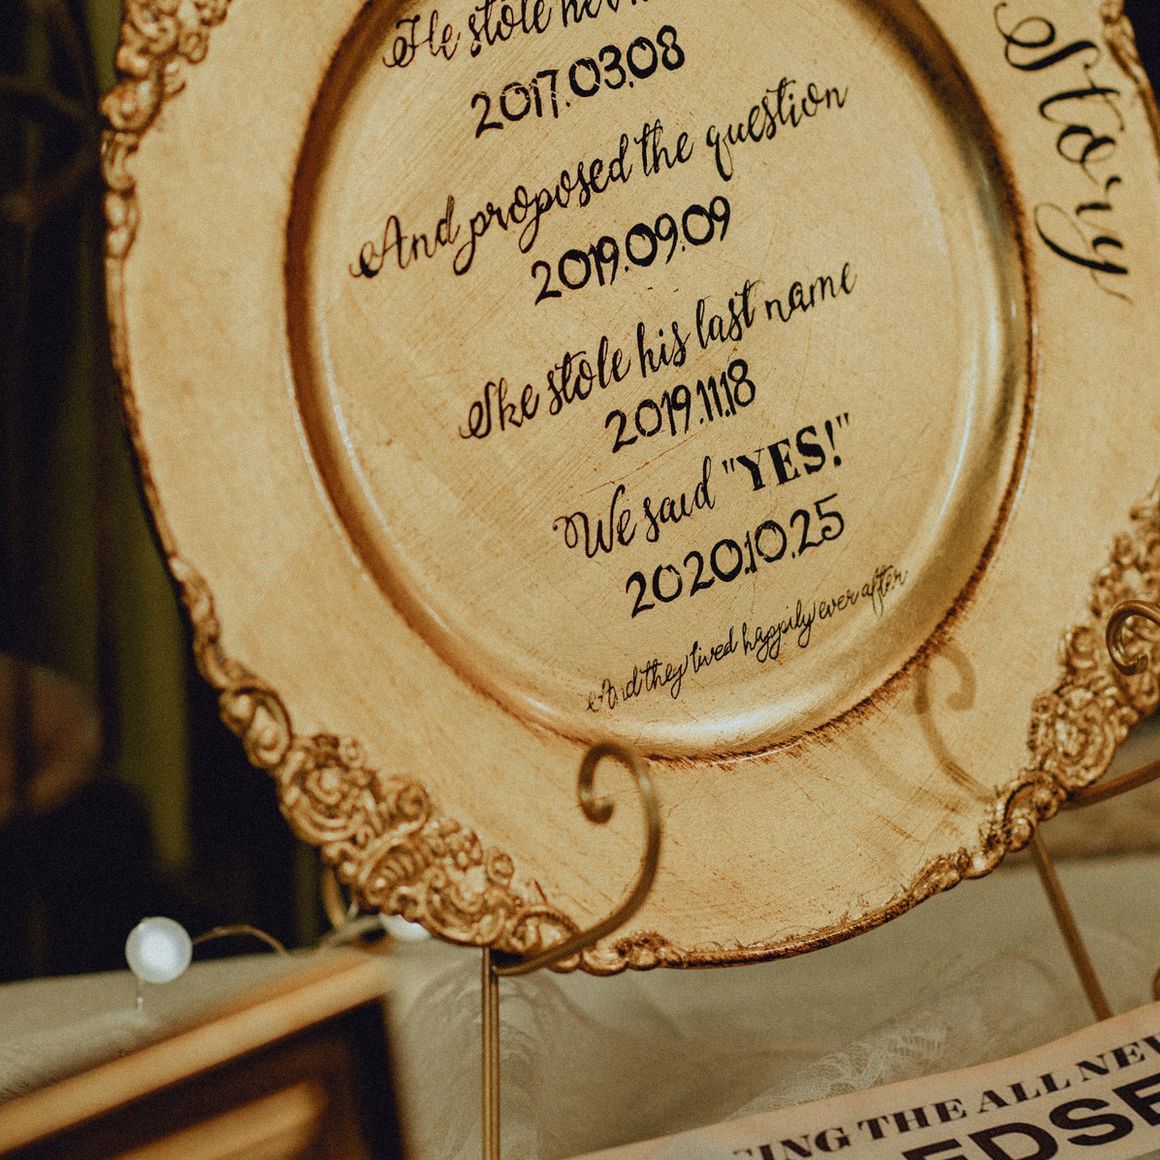 He stole her
2017.03.08
And proposed the question
2019.09.09
She stole his last name
2019.11.18
We said "YES!"
2020.10.25
And they lived happily ever after
Story
THE ALL